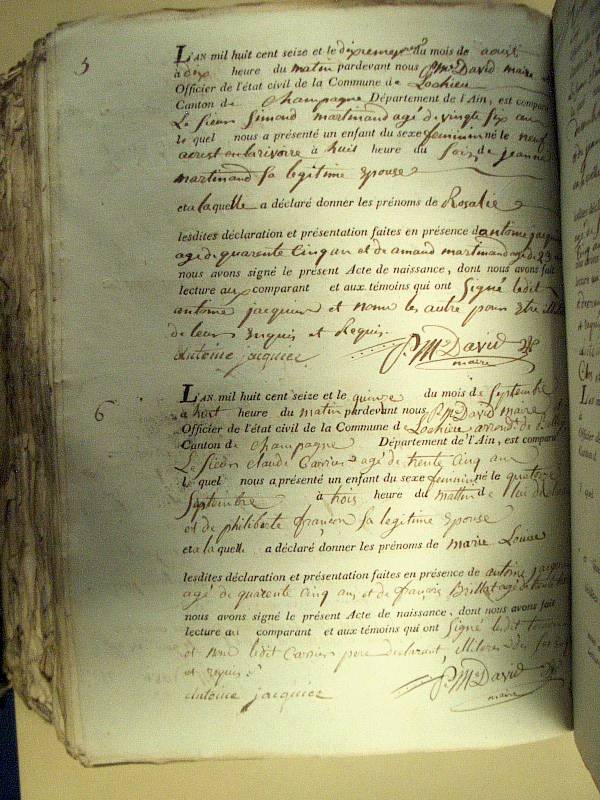 5
L'AN mil huit cent seize et le dixieme du mois de aoust
à dix heure du matin pardevant nous P. Me David maire et
Officier de l'état civil de la Commune de Lochieu
Canton de Champagne Département de l'Ain, est compar
Le Sieur Simond martinand agé de vingt Six an
le quel nous a présenté un enfant du sexe feminin né le neuf
aoust à huit heure du Soir de jeanne
martinand Sa legitime Epouse
et a laquelle a déclaré donner les prénoms de Rosalie
lesdites déclaration et présentation faites en présence d'antoine jacquier
agé de quarente Cinq an et de amand martinand agé de 23
nous avons signé le présent Acte de naissance, dont nous avons fait
lecture au comparant et aux témoins qui ont Signé ledit
antoine jacquier et nom les autre pour Etre illit
de leurs Enquis et Requis
Antoine jacquier P. Me David
maire
6
L'AN mil huit cent seize et le quinze du mois de Septembre
à huit heure du matin pardevant nous P. Me David maire et
Officier de l'état civil de la Commune de Lochieu arrond. de
Canton de Champagne Département de l'Ain, est comparu
Le Sieur Claude Carrier agé de trente Cinq an
le quel nous a présenté un enfant du sexe feminin né le quatorze
Septembre à trois heure du matin de lui de
et de philiberte françon Sa legitime Epouse
et a la quelle a déclaré donner les prénoms de marie Louise
lesdites déclaration et présentation faites en présence de antoine jacquier
agé de quarente Cinq ans et de françois Brillat agé de trente
nous avons signé le présent Acte de naissance, dont nous avons fait
lecture au comparant et aux témoins qui ont Signé ledit
et nom ledit Carrier pere declarant, illiteres de
et requis
Antoine jacquier P. Me David
maire